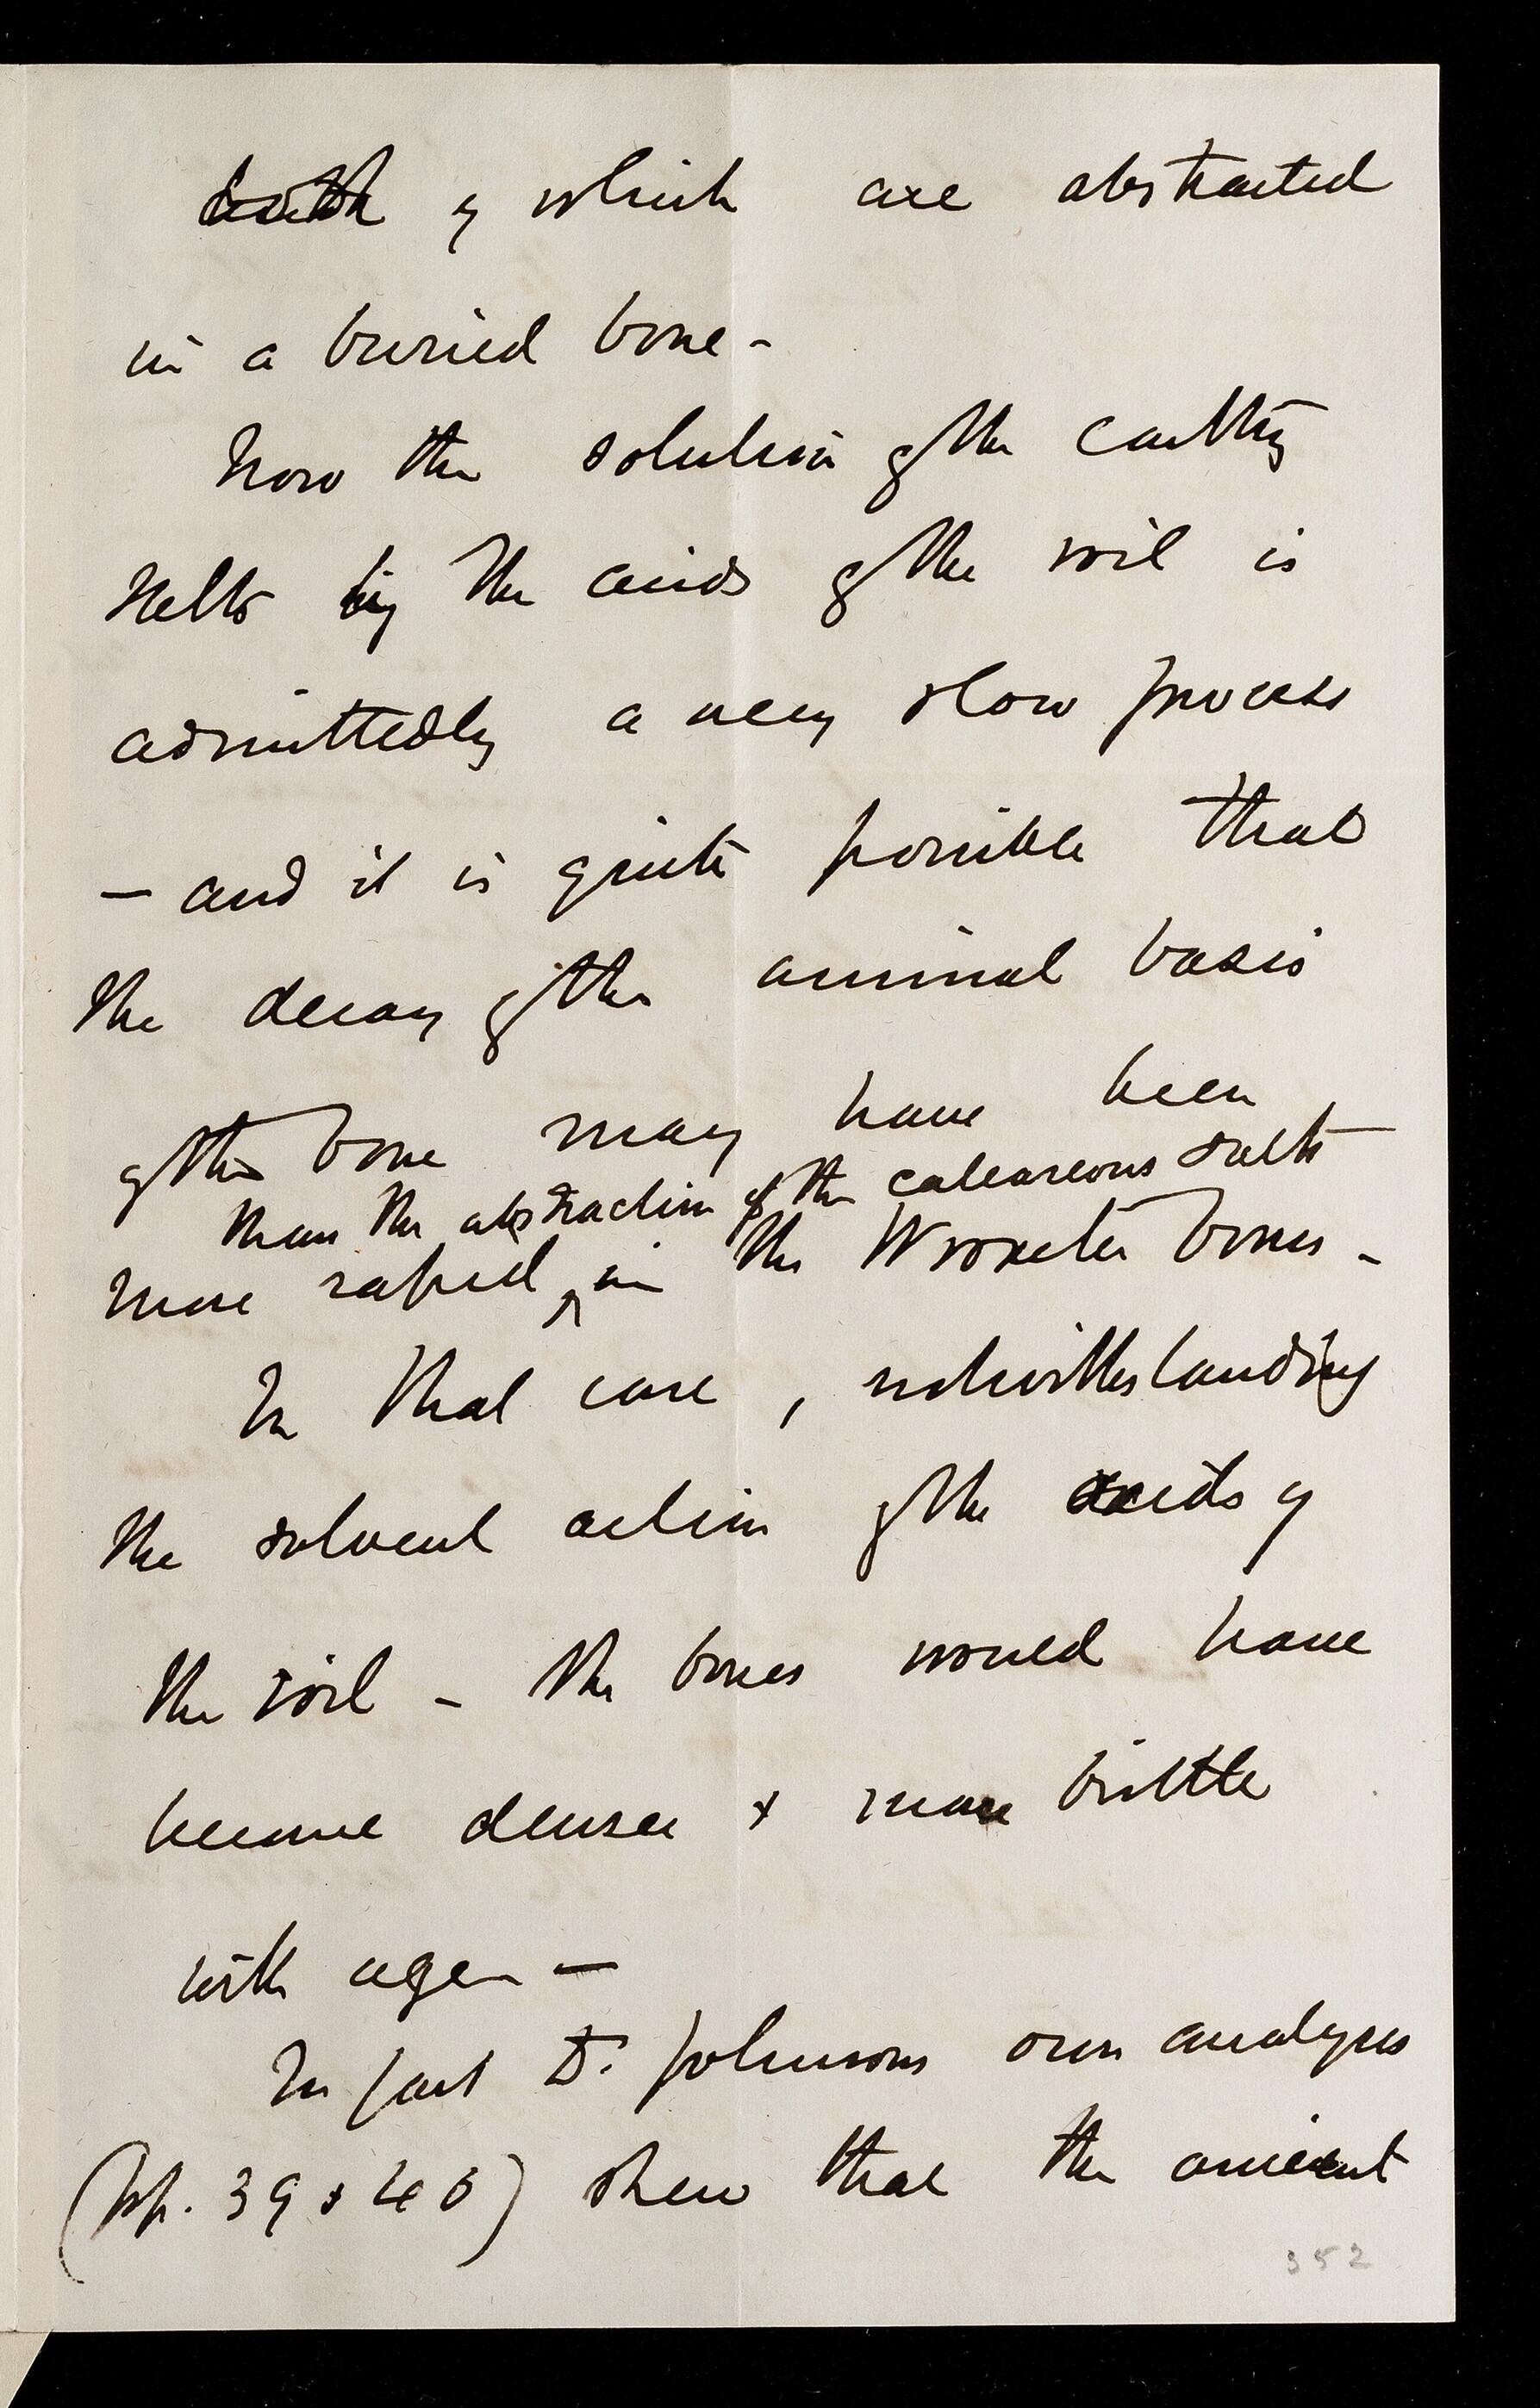 both of which are abstracted
in a buried bone -
Now the solution of the earthy
salts by the acids of the soil is
admittedly a very slow process
- and it is quite possible that
the decay of the animal basis
of the bone may have been
than the abstraction of the calcareous salts
more rapid ^ in the Wroxeter bones -
In that case, notwithstanding
the solvent action of the acids of
the soil - the bones would have
become denser & more brittle
with age -
In fact Dr Johnsons own analyses
(pp. 39 & 40) shew that the ancient
352